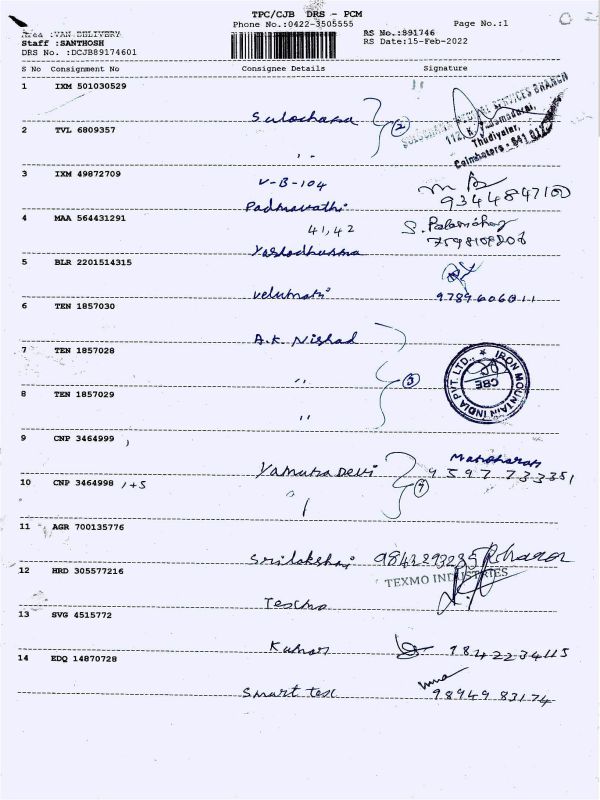 TPC/CJB DRS - PCM
Phone No.:0422-3505555 Page No.:1
Area :VAN DELIVERY RS No.:891746
Staff :SANTHOSH RS Date:15-Feb-2022
DRS No. :DCJB89174601
S No Consignment No Consignee Details Signature
1 IXM 501030529
Sulochana 2
2 TVL 6809357
Coimbatore - 641 017
3 IXM 49872709
V-B-104
9344847100
Padmavathi
4 MAA 564431291
41,42
Yashodhamma
5 BLR 2201514315
Velumani 9789606011
6 TEN 1857030
A.K. Nishad
7 TEN 1857028
3
IRON MOUNTAIN INDIA PVT. LTD.,
CBE
8 TEN 1857029
9 CNP 3464999
Manoharan
Yamuna Devi 9597733351
10 CNP 3464998 1+5
11 AGR 700135776
9841293235
12 HRD 305577216
TEXMO INDUSTRIES
13 SVG 4515772
Kumar 9842234115
14 EDQ 14870728
Smart tex 98949 83174